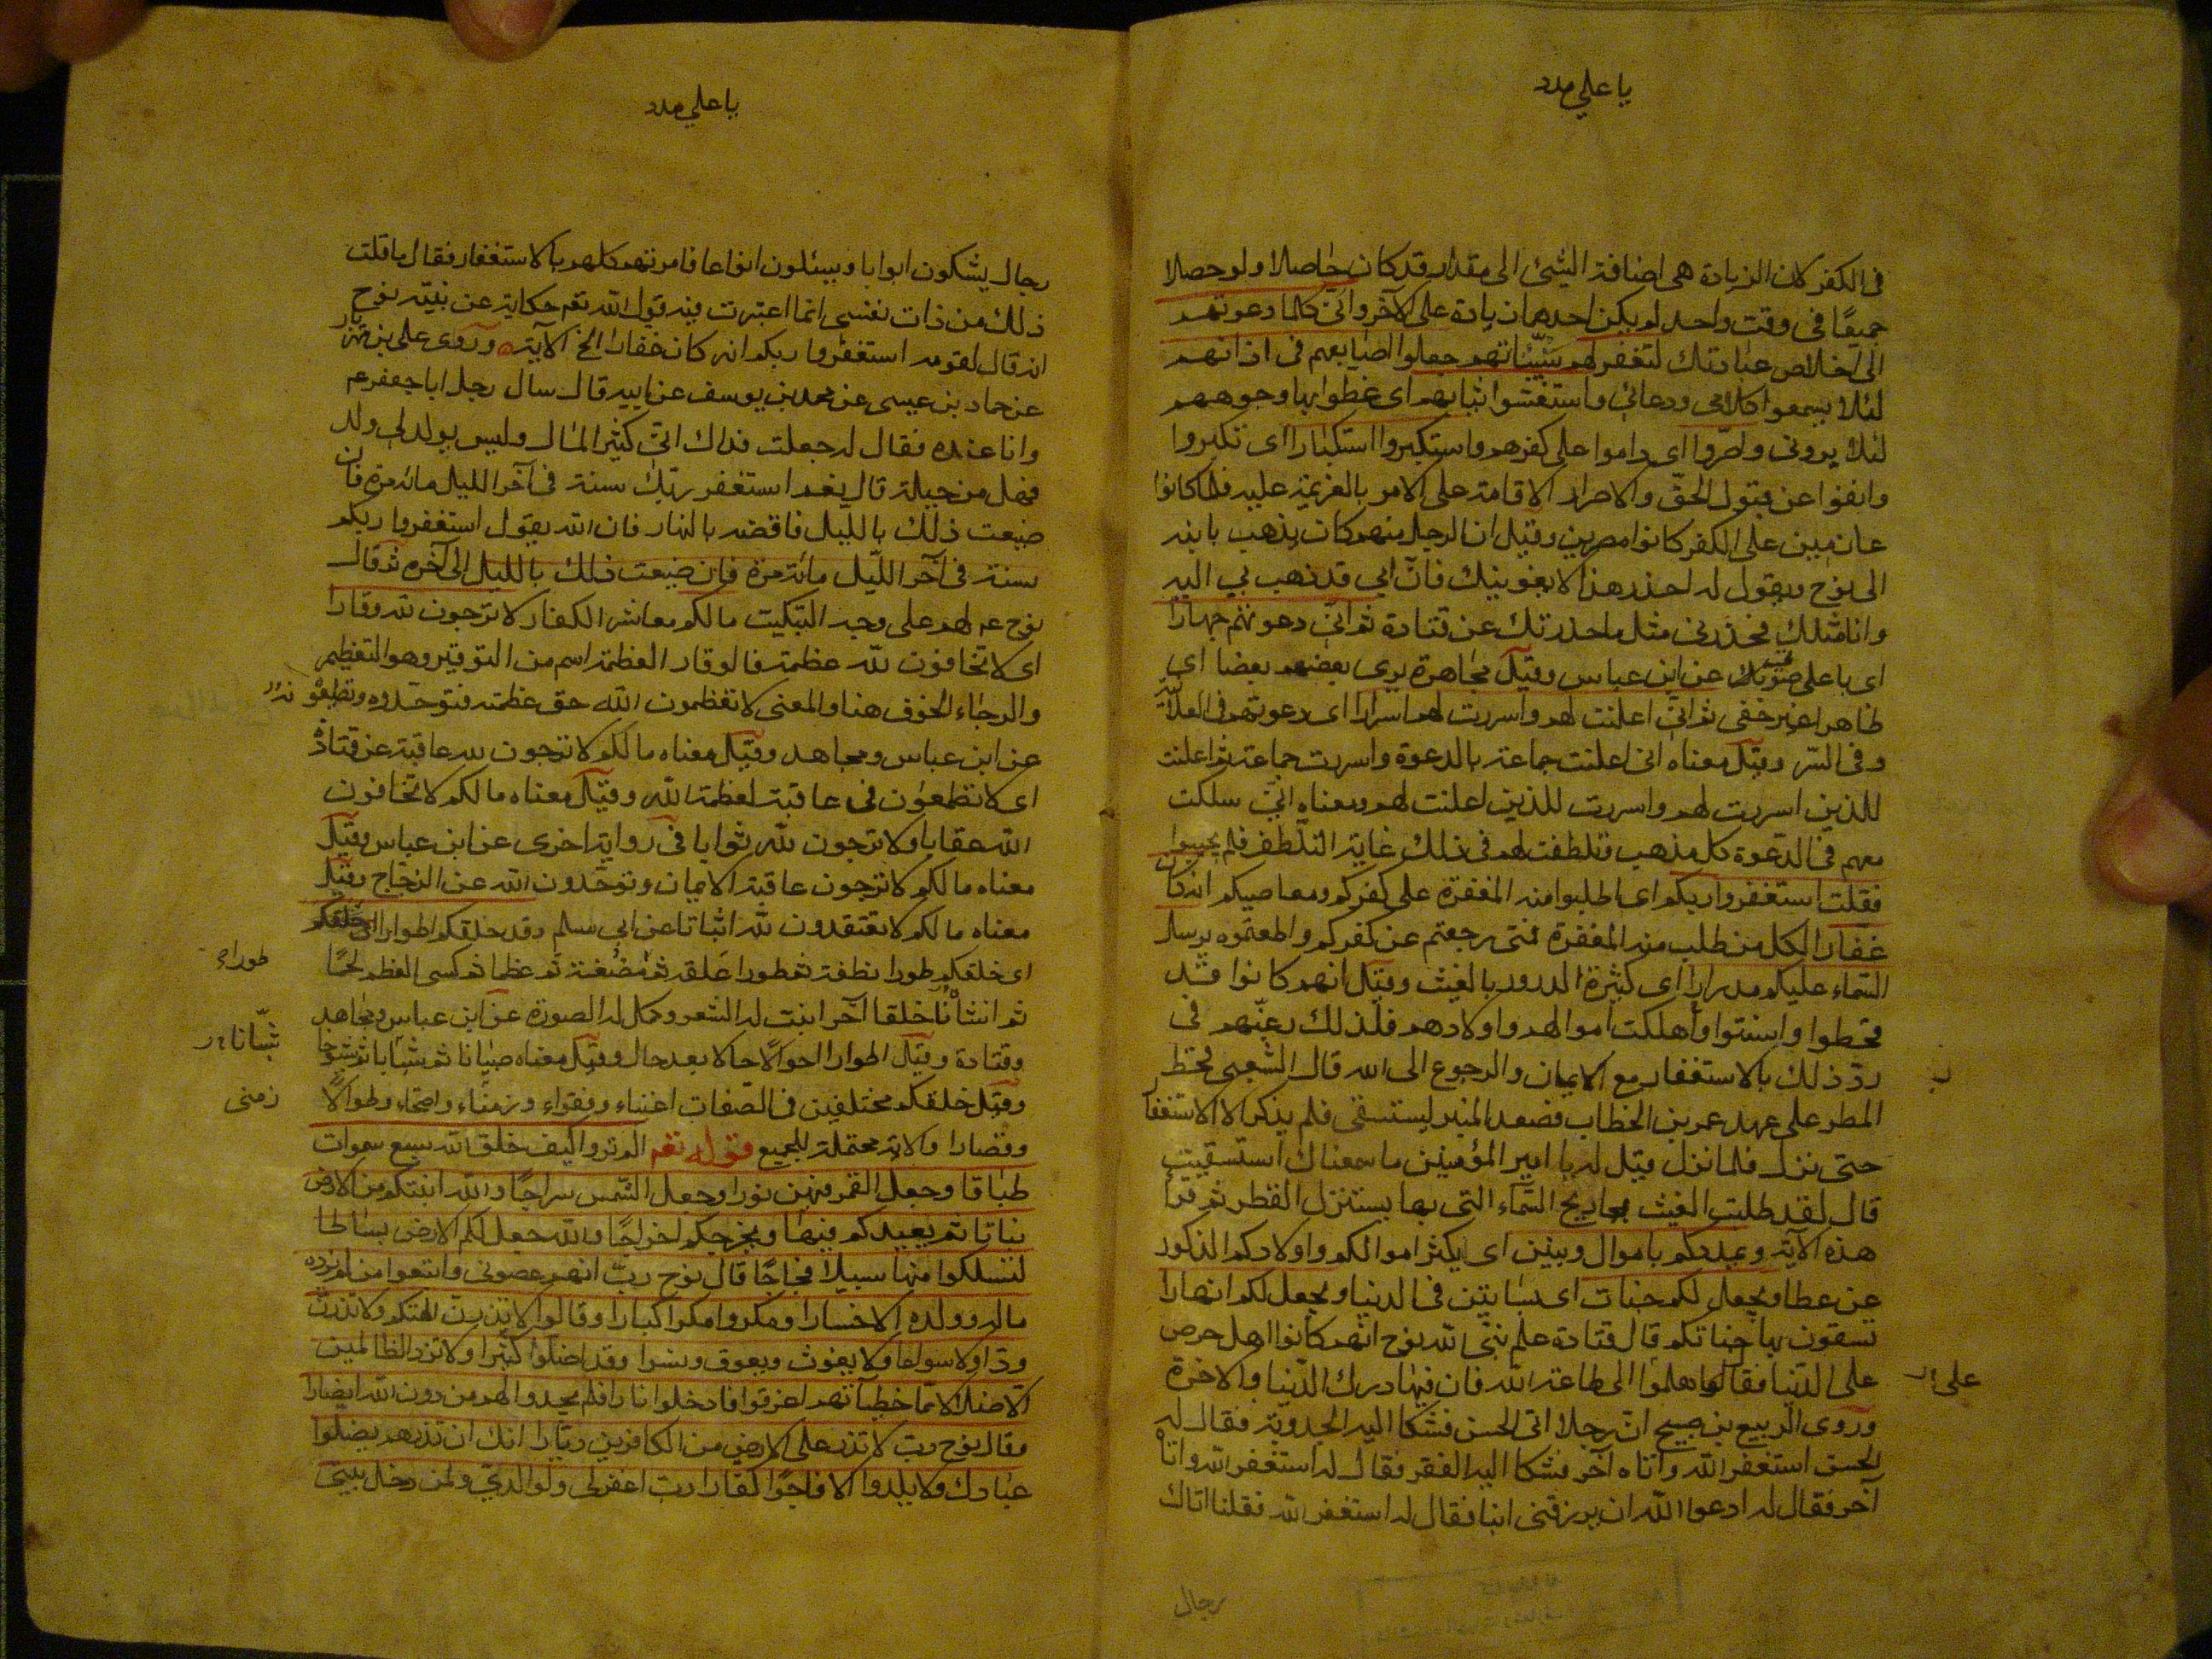 يا علي مدد
فى الكفر لان الزيادة هى اضافة الشئ الى مقدار قد كان حاصلا ولو حصلا
جميعًا فى وقت واحد لم يكن احدهما زيادة على الآخر وانّى كلما دعوتهم
الى اخلاص عبادتك لتغفر لهم سَيِّئاتهم جعلوا اصابعهم فى اذانهم
لئلا يسمعوا كلامى ودعائى واستغشوا ثيابهم اى غطوا بها وجوههم
لئلا يرونى واصرّوا اى داموا على كفرهم واستكبروا استكبارا اى تكبروا
وانفوا عن قبول الحقّ والاصرار الاقامة على الامر بالعزيمة عليه فلما كانوا
عازمين على الكفر كانوا مصرين وقيل ان الرجل منهم كان يذهب بابنه
الى نوح ويقول له احذر هذا لا يغوينك فانّ ابي قد ذهب بي اليه
وانا مثلك فحذرنى مثل ما حذرتك عن قتادة ثم انّى دعوتهم جهارًا
اى باعلى صوتك عن ابن عباس وقيل مجاهرة يرى بعضهم بعضا اى
ظاهرا غير خفى ثم انّى اعلنت لهم واسررت لهم اسرارا اى دعوتهم فى العلانية
وفى السّر وقيل معناه انى اعلنت جماعة بالدعوة واسررت جماعة ثم اعلنت
للذين اسررت لهم واسررت للذين اعلنت لهم ومعناه انّى سلكت
معهم فى الدّعوة كل مذهب وتلطفت لهم فى ذلك غاية التلّطف فلم يجيبوا
فقلت استغفروا ربكم اى اطلبوا منه المغفرة على كفركم ومعاصيكم انه كان
غفارا لكل من طلب منه المغفرة فمتى رجعتم عن كفركم واطعتموه يرسل
السّماء عليكم مدرارا اى كثيرة الدرور بالغيث وقيل انهم كانوا قد
قحطوا واسنتوا واهلكت اموالهم واولادهم فلذلك رغّبهم فى
ردّ ذلك بالاستغفار مع الايمان والرجوع الى الله قال الشّعبى قحط
المطر على عهد عمر بن الخطاب فصعد المنبر ليستسقى فلم يذكر الا الاستغفار
حتى نزل فلما نزل قيل له يا امير المؤمنين ما سمعناك استسقيت
قال لقد طلبت الغيث بمجاديح السّماء التى بها يستنزل القطر ثم قرأ
هذه الآية ويمددكم باموال وبنين اى يكثر اموالكم واولادكم الذكور
عن عطا ويجعل لكم جنات اى بساتين فى الدنيا ويجعل لكم انهارا
تسقون بها جناتكم قال قتادة علم نبىّ الله نوح انّهم كانوا اهل حرص
على الدّنيا فقال هلموا الى طاعة الله فان فيها درك الدّنيا والاخرة
على
وروى الربيع بن صبيح انّ رجلا اتى الحسن فشكا اليه الجدوبة فقال له
الحسن استغفر الله واتاه آخر فشكا اليه الفقر فقال له استغفر الله واتاه
آخر فقال له ادعوا الله ان يرزقنى ابنا فقال له استغفر الله فقلنا اتاك
رجال
يا علي مدد
رجال يشكون ابوابا ويسئلون انواعا فامرتهم كلهم بالاستغفار فقال ما قلت
ذلك من ذات نفسى انما اعتبرت فيه قول الله تعم حكاية عن نبيّه نوح
انه قال لقومه استغفروا ربكم انه كان غفارا الخ الآية وروى على بن مهزيار
عن حماد بن عيسى عن محمد بن يوسف عن ابيه قال سال رجل ابا جعفر عم
وانا عنده فقال له جعلت فداك انّى كثير المال وليس يولد لى ولد
فهل من حيلة قال نعم استغفر ربّك سنة فى آخر الليل مائة مرة فان
ضيعت ذلك بالليل فاقضه بالنهار فان الله يقول استغفروا ربكم
سنة فى آخر اللّيل مائة مرة فان ضيعت ذلك بالليل الى آخره ثم قال
نوح عم لهم على وجه التبكيت ما لكم معاشر الكفار لا ترجون لله وقارا
اى لا تخافون لله عظمة فالوقار العظمة اسم من التوقير وهو التعظيم
والرجاء الخوف هنا والمعنى لا تعظمون الله حق عظمته فتوحّدوه وتطيعوه
عن ابن عباس ومجاهد وقيل معناه ما لكم لا ترجون لله عاقبة عن قتادة
اى لا تطمعون فى عاقبة لعظمة الله وقيل معناه ما لكم لا تخافون
الله عقابا ولا ترجون لله ثوابا فى رواية اخرى عن ابن عباس وقيل
معناه ما لكم لا ترجون عاقبة الايمان وتوحّدون الله عن الزجّاج وقيل
معناه ما لكم لا تعتقدون لله اثباتا عن ابى مسلم وقد خلقكم اطوارا
اى خلقكم طورا نطفة ثم طورا علقة ثم مضغة ثم عظما ثم كسى العظم لحمًا
طورا
ثم انشأنا خلقا آخر انبت له الشعر وكمل له الصورة عن ابن عباس ومجاهد
وقتادة وقيل اطوارا احوالًا حالا بعد حال وقيل معناه صبيانا ثم شبّابا ثم شيوخا
شبّانا
وقيل خلقكم مختلفين فى الصّفات اغنياء وفقراء وزمناء واصحاء وطوالًا
زمنى
وقصارا والاية محتملة للجميع قوله تعم الم تروا كيف خلق الله سبع سموات
طباقا وجعل القمر فيهن نورا وجعل الشّمس سراجًا والله انبتكم من الارض
نباتا ثم يعيدكم فيها ويخرجكم اخراجًا والله جعل لكم الارض بساطا
لتسلكوا منها سبيلا فجاجًا قال نوح ربّ انهم عصونى واتبعوا من لم يزده
ماله وولده الا خسارا ومكروا مكرا كبارا وقالوا لا تذرنّ الهتكم ولا تذرنّ
ودّا ولا سواعا ولا يغوث ويعوق ونسرا وقد اضلّوا كثيرا ولا تزد الظالمين
الّا ضلالا ممّا خطيآتهم اغرقوا فادخلوا نارا فلم يجدوا لهم من دون الله انصارا
وقال نوح ربّ لا تذر على الارض من الكافرين ديّارا انك ان تذرهم يضلّوا
عبادك ولا يلدوا الا فاجرًا كفّارا رب اغفر لى ولوالدىّ ولمن دخل بيتى